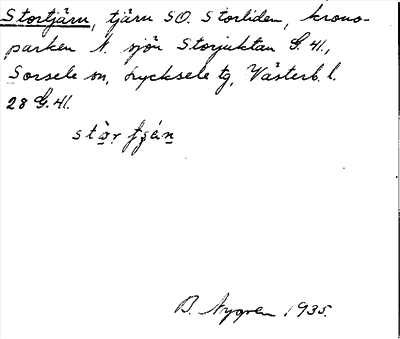 Stortjärn, tjärn SO. Storliden, krono-
parken N. sjön Storjuktan G. 41,
Sorsele sn, Lycksele tg, Västerb. l.
28 G. 41.
B. Nygren 1935.